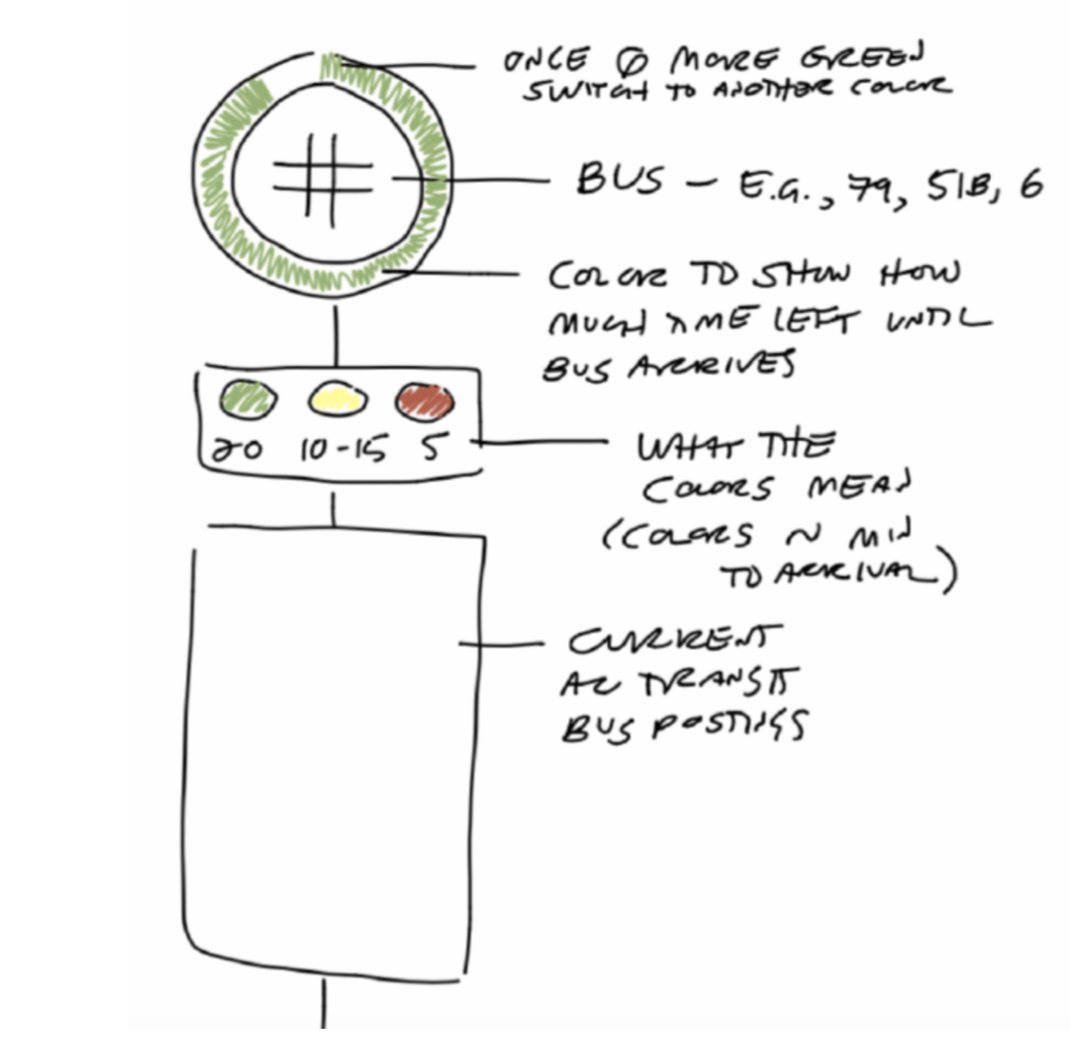 ONCE 0 MORE GREEN
SWITCH TO ANOTHER COLOR
#
BUS – E.G., 79, 51B, 6
COLOR TO SHOW HOW
MUCH TIME LEFT UNTIL
BUS ARRIVES
20 10-15 5
WHAT THE
COLORS MEAN
(COLORS ~ MIN
TO ARRIVAL)
CURRENT
AC TRANSIT
BUS POSTINGS